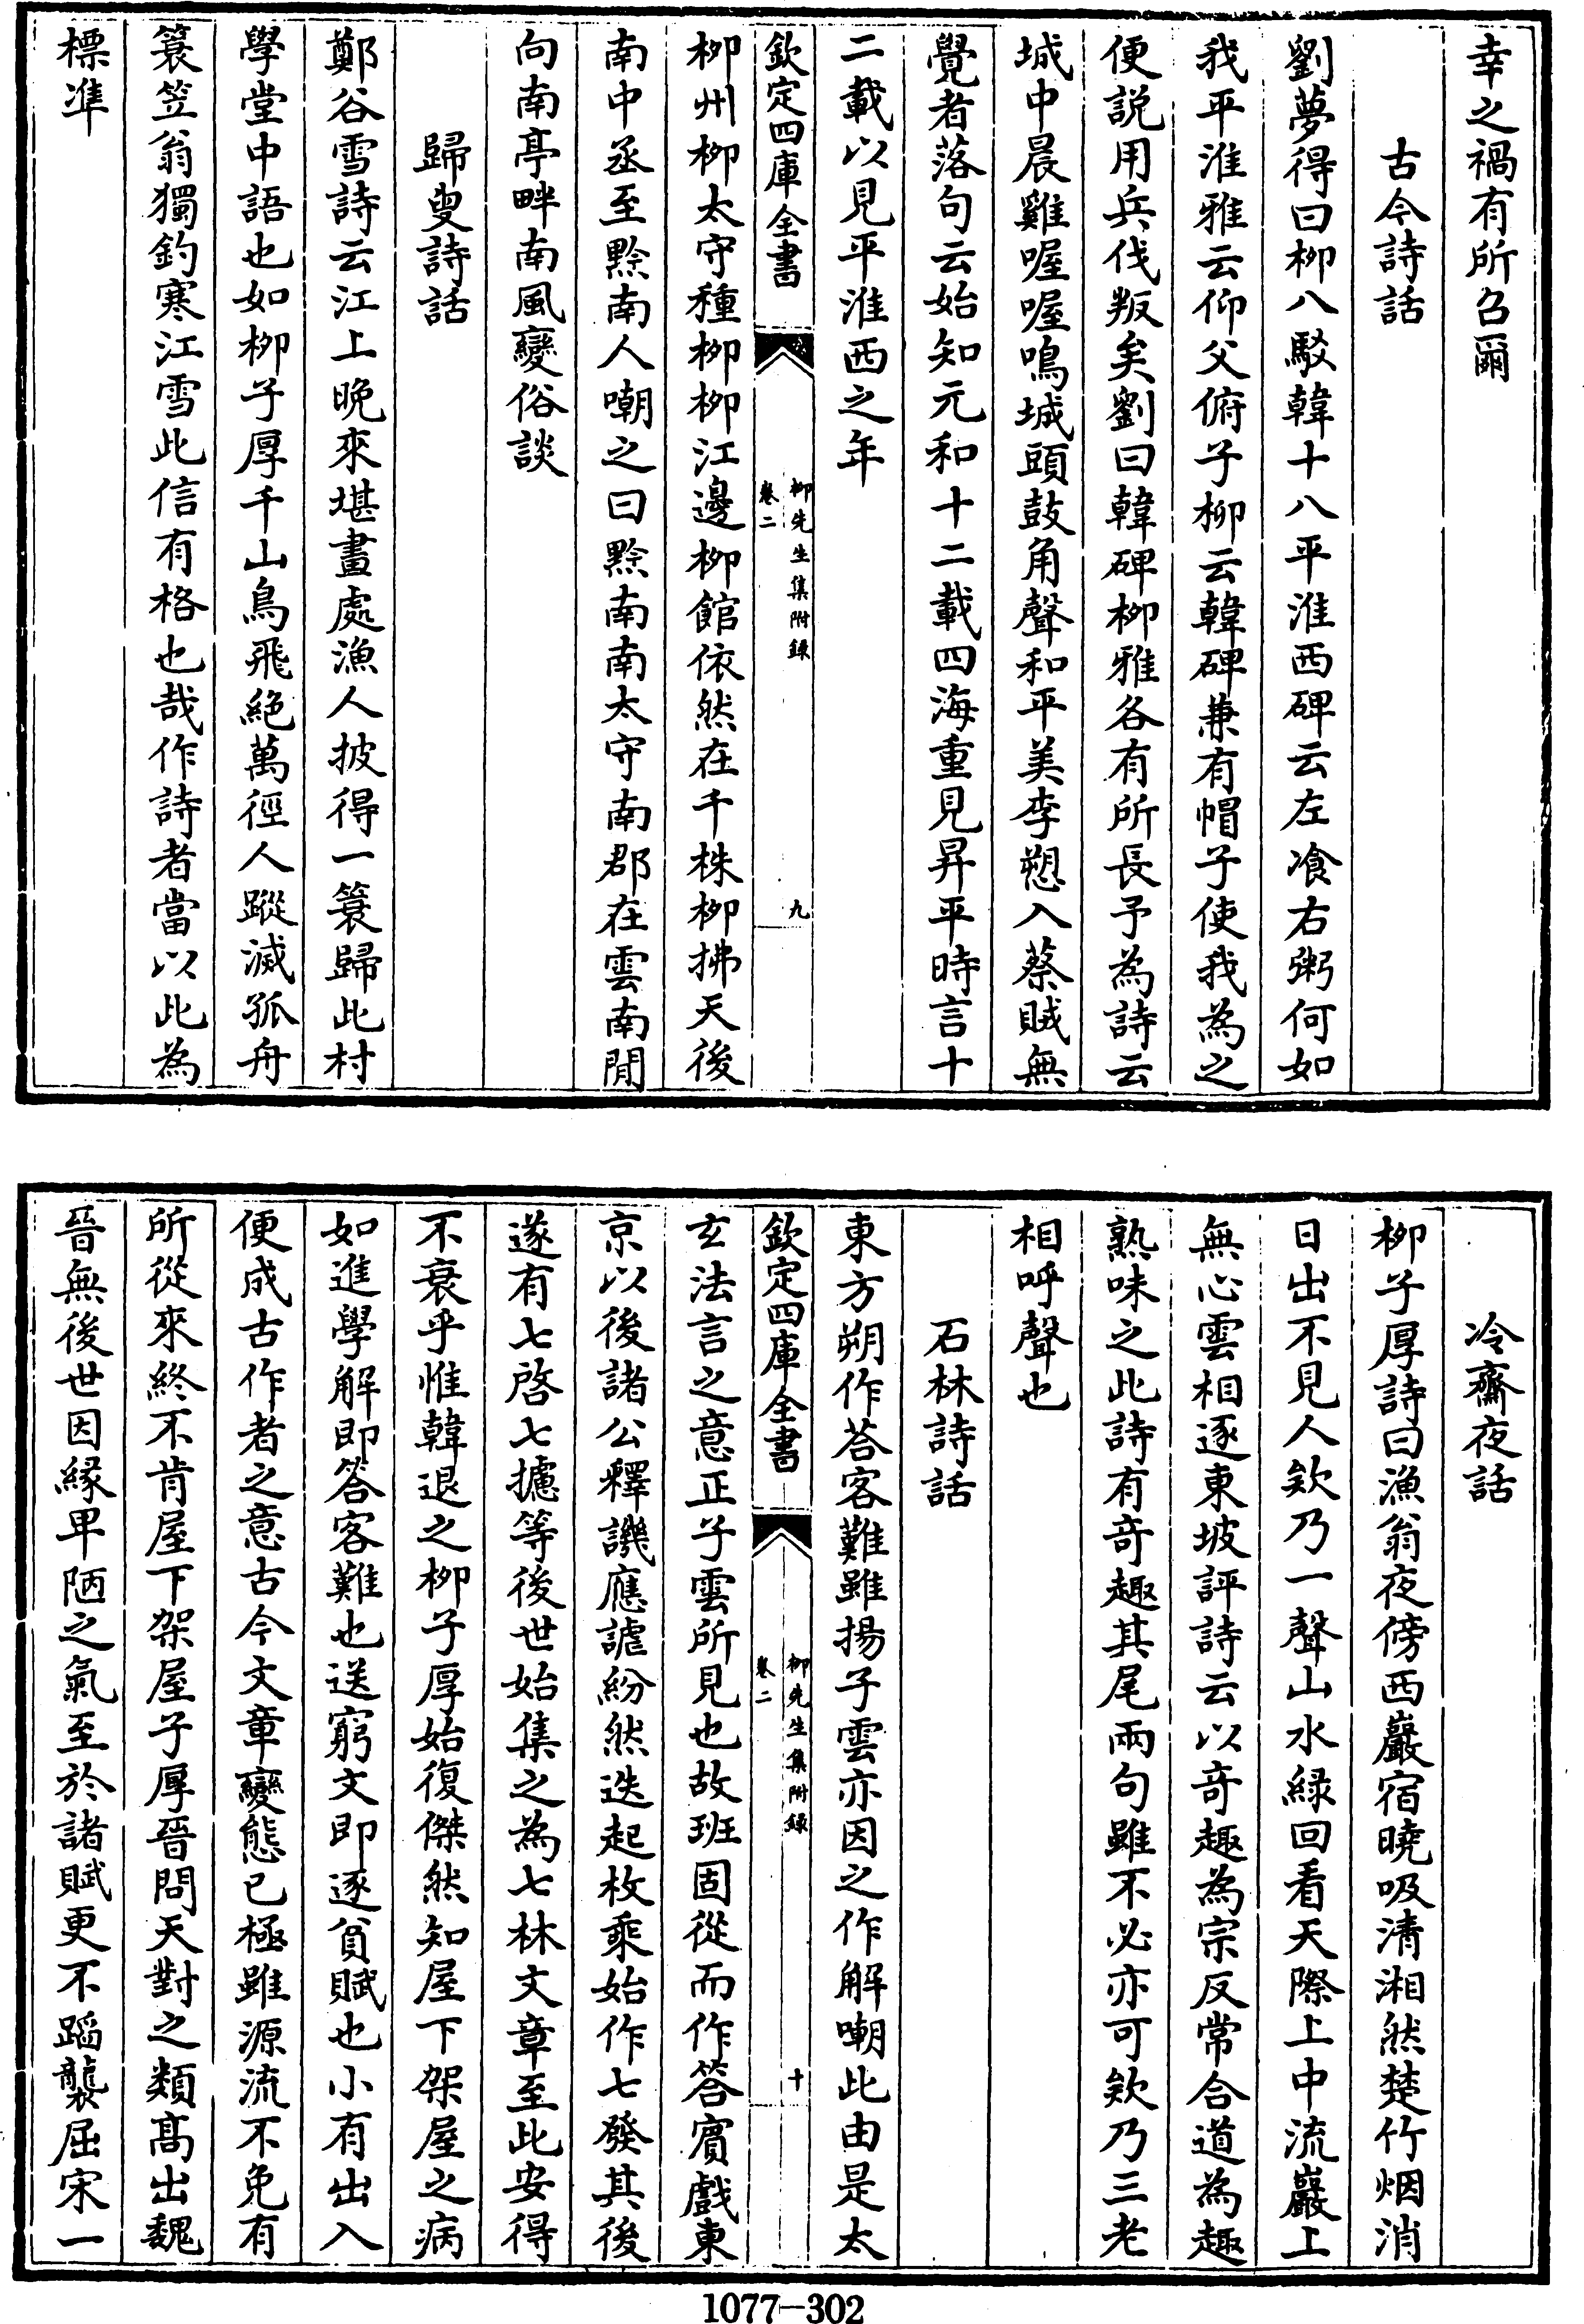 幸之禍有所召爾
古今詩話
劉夢得曰柳八駁韓十八平淮西碑云左飡右粥何如
我平淮雅云仰父俯子柳云韓碑兼有帽子使我為之
便説用兵伐叛矣劉曰韓碑柳雅各有所長予為詩云
城中晨雞喔喔鳴城頭鼓角聲和平美李愬入蔡賊無
覺者落句云始知元和十二載四海重見昇平時言十
二載以見平淮西之年
欽定四庫全書
柳先生集附録
卷二
九
柳州柳太守種柳柳江邊柳館依然在千株柳拂天後
南中丞至黔南人嘲之曰黔南南太守南郡在雲南閒
向南亭畔南風變俗談
歸叟詩話
鄭谷雪詩云江上晚來堪畫處漁人披得一簑歸此村
學堂中語也如柳子厚千山鳥飛絶萬徑人蹤滅孤舟
簑笠翁獨釣寒江雪此信有格也哉作詩者當以此為
標準
冷齋夜話
柳子厚詩曰漁翁夜傍西巖宿曉吸清湘然楚竹烟消
日出不見人欸乃一聲山水緑回看天際上中流巖上
無心雲相逐東坡評詩云以竒趣為宗反常合道為趣
熟味之此詩有竒趣其尾兩句雖不必亦可欸乃三老
相呼聲也
石林詩話
東方朔作荅客難雖揚子雲亦因之作解嘲此由是太
欽定四庫全書
柳先生集附録
卷二
十
玄法言之意正子雲所見也故班固從而作答賔戲東
京以後諸公釋譏應謔紛然迭起枚乘始作七發其後
遂有七啓七攄等後世始集之為七林文章至此安得
不衰乎惟韓退之柳子厚始復傑然知屋下架屋之病
如進學解即答客難也送窮文即逐貧賦也小有出入
便成古作者之意古今文章變態已極雖源流不免有
所從來終不肯屋下架屋子厚晉問天對之類髙出魏
晉無後世因緣卑陋之氣至於諸賦更不蹈襲屈宋一
1077—302